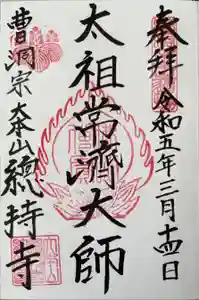 奉拝 令和五年三月十四日
太祖常濟大師
曹洞宗 大本山 總持寺